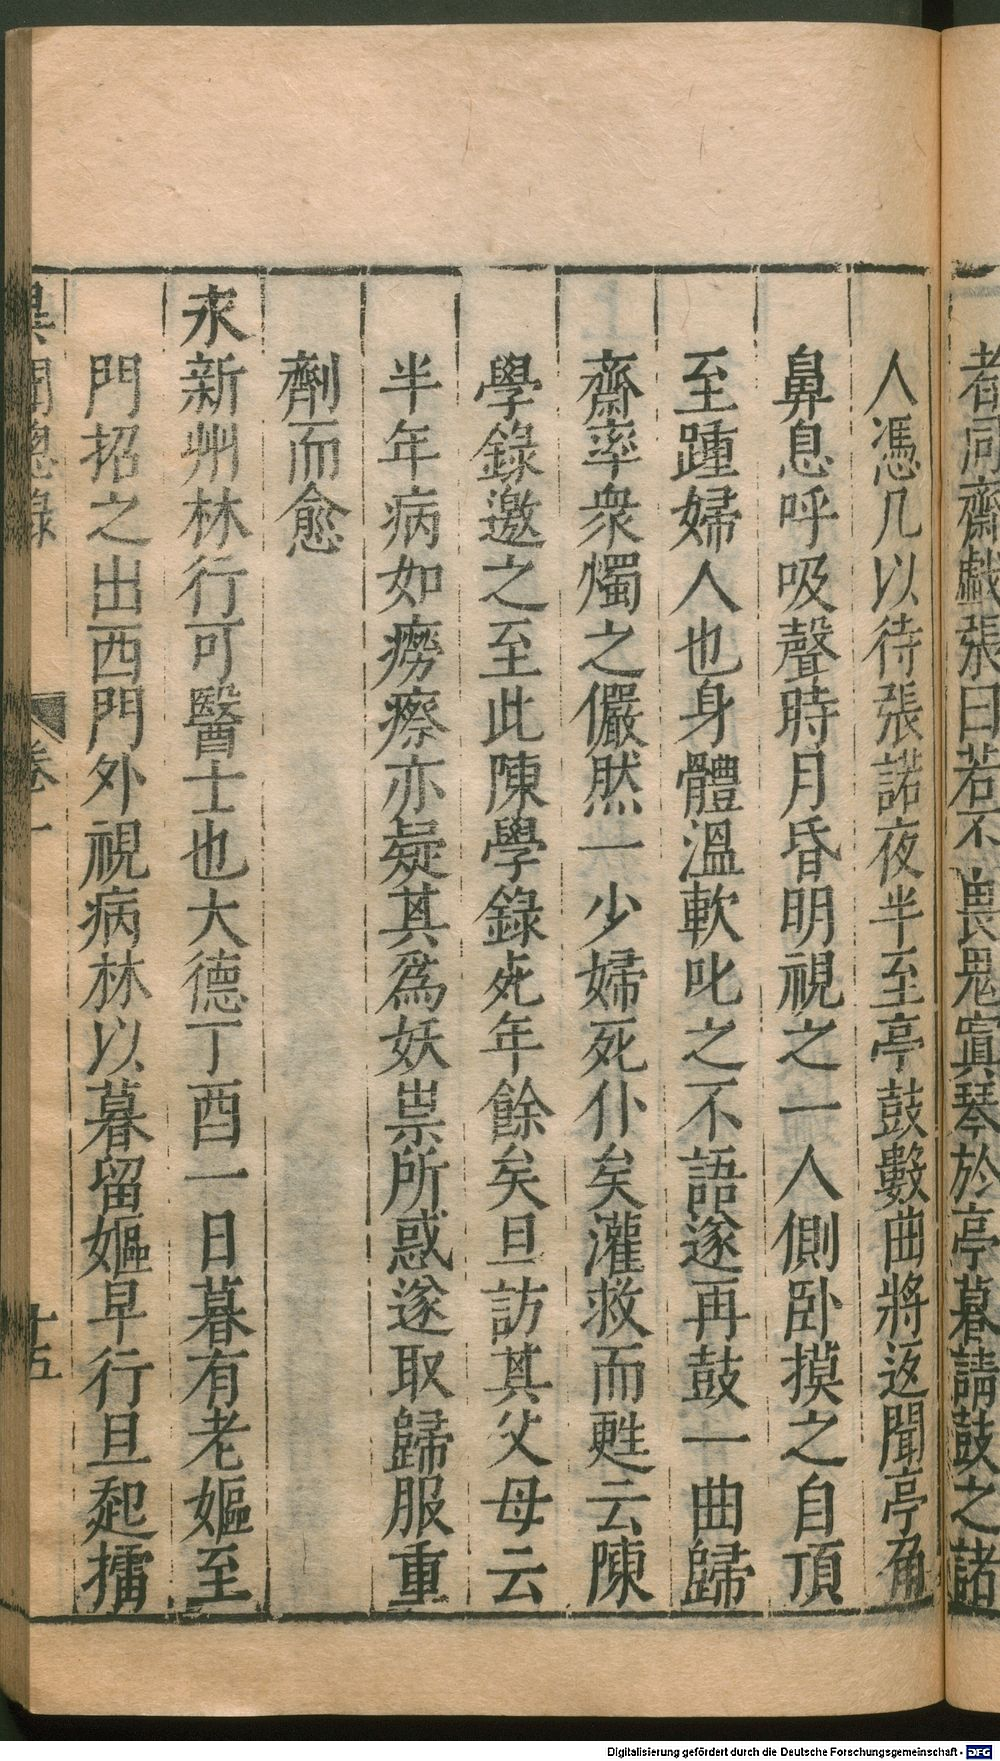 者同齋戲張曰若不畏鬼寘琴於亭暮請鼓之諸
人憑几以待張諾夜半至亭鼓數曲將返聞亭角
鼻息呼吸聲時月昏明視之一人側卧摸之自頂
至踵婦人也身體溫軟叱之不語遂再鼓一曲歸
齋率衆燭之儼然一少婦死仆矣灌救而甦云陳
學錄邀之至此陳學錄死年餘矣旦訪其父母云
半年病如癆瘵亦疑其爲妖祟所惑遂取歸服重
劑而愈
永新州林行可醫士也大德丁酉一日暮有老嫗至
門招之出西門外視病林以暮留嫗早行旦起擂
異聞總錄 卷一 十五
Digitalisierung gefördert durch die Deutsche Forschungsgemeinschaft - DFG